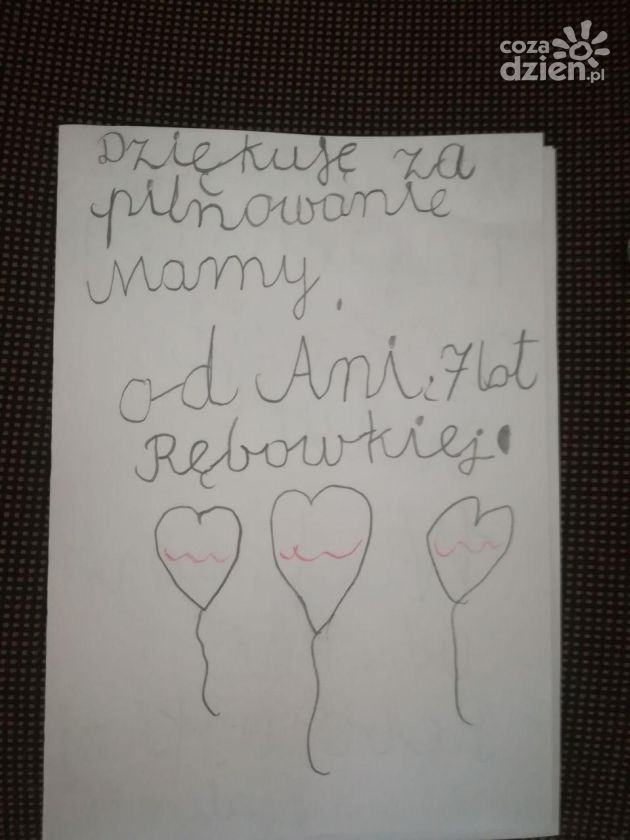 coza
dzień.pl
Dziękuję za
pilnowanie
Mamy.
od Ani, 7 lat
Rębowkiej